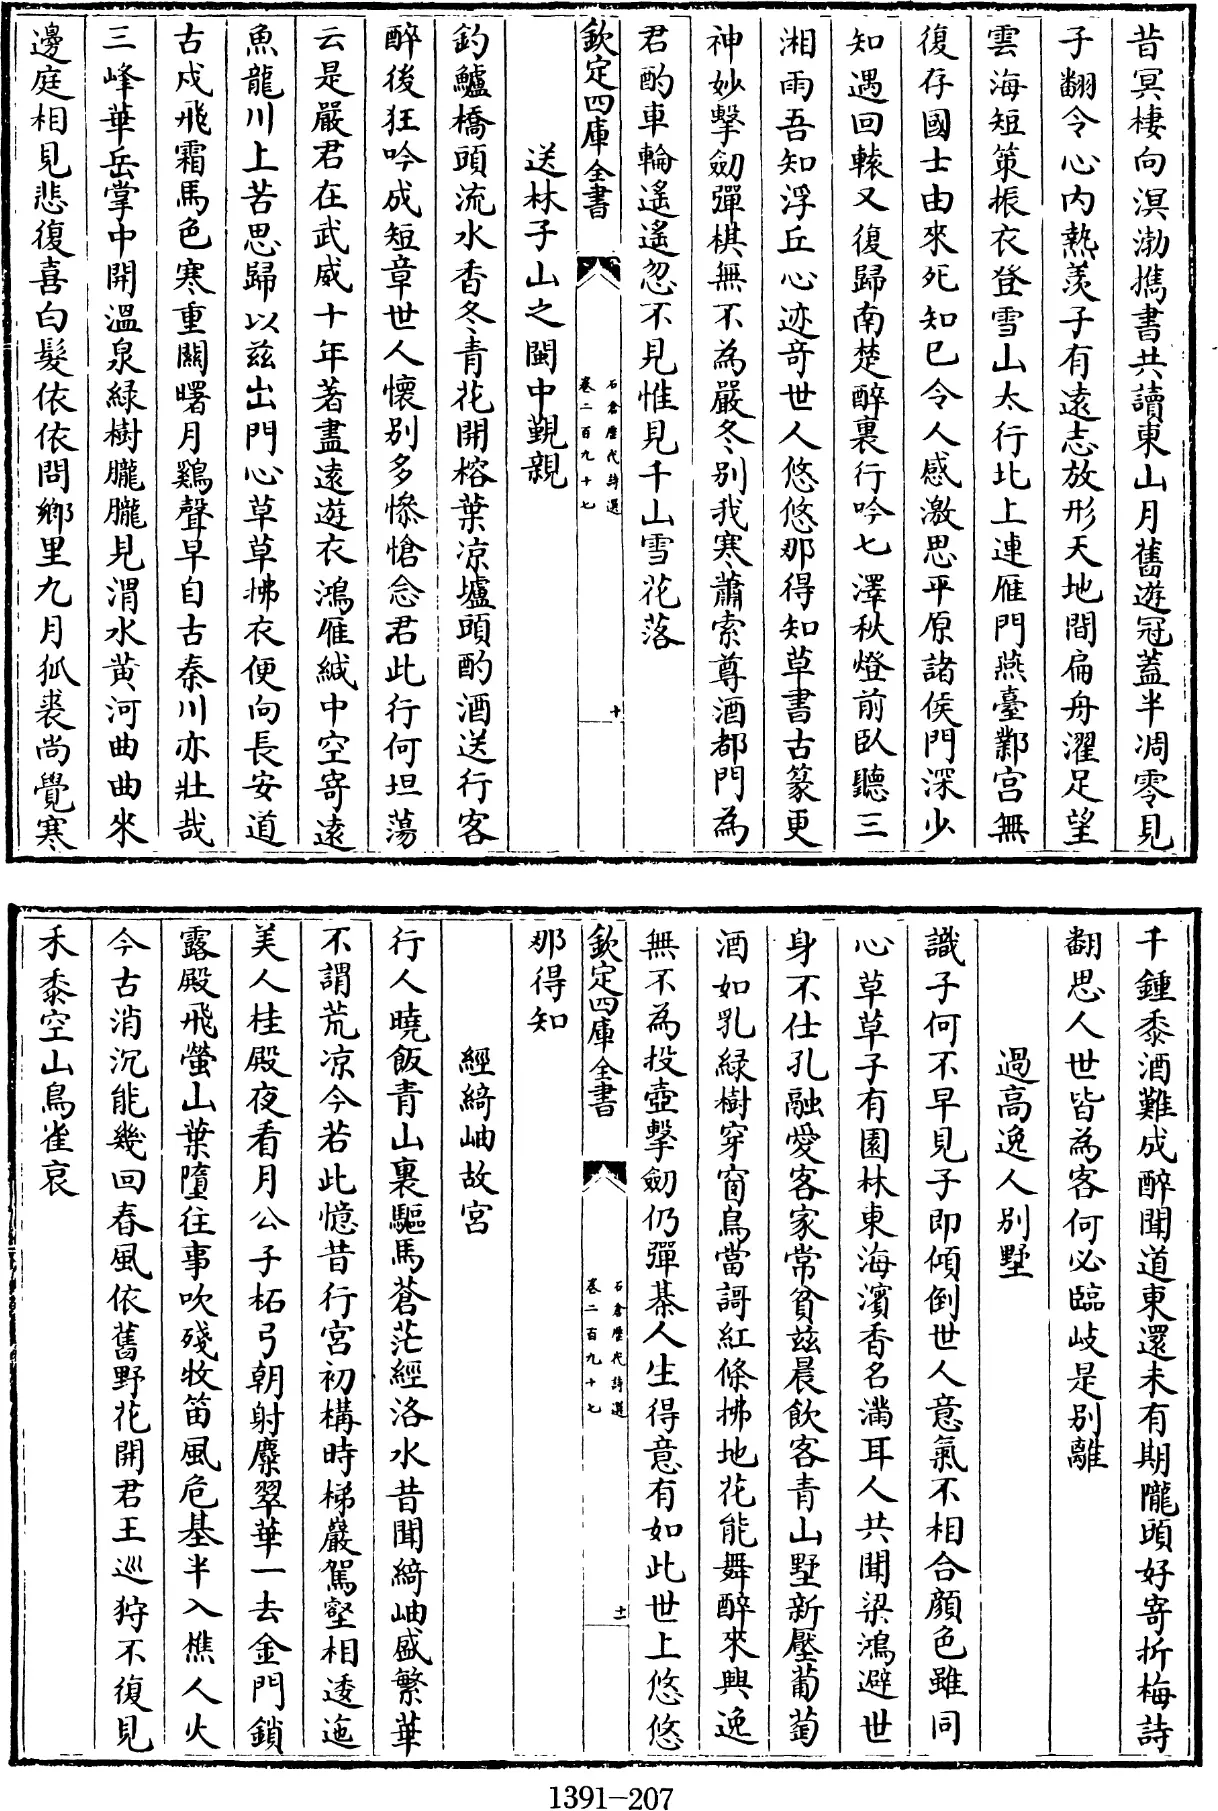 昔冥棲向溟渤攜書共讀東山月舊遊冠蓋半凋零見
子翻令心内熱羨子有遠志放形天地間扁舟濯足望
雲海短策振衣登雪山太行北上連雁門燕臺鄴宫無
復存國士由來死知已令人感激思平原諸侯門深少
知遇回轅又復歸南楚醉裏行吟七澤秋燈前臥聽三
湘雨吾知浮丘心迹奇世人悠悠那得知草書古篆更
神妙擊劒彈棋無不為嚴冬别我寒蕭索尊酒都門為
君酌車輪遙遙忽不見惟見千山雪花落
欽定四庫全書
石倉歷代詩選
卷二百九十七
十
送林子山之閩中覲親
釣鱸橋頭流水香冬青花開榕葉凉壚頭酌酒送行客
醉後狂吟成短章世人懷别多慘愴念君此行何坦蕩
云是嚴君在武威十年著盡遠遊衣鴻雁緘中空寄遠
魚龍川上苦思歸以兹出門心草草拂衣便向長安道
古戍飛霜馬色寒重關曙月鷄聲早自古秦川亦壯哉
三峰華岳掌中開溫泉綠樹朧朧見渭水黄河曲曲來
邊庭相見悲復喜白髮依依問鄉里九月狐裘尚覺寒
千鍾黍酒難成醉聞道東還未有期隴頭好寄折梅詩
翻思人世皆為客何必臨岐是别離
過高逸人别墅
識子何不早見子即傾倒世人意氣不相合顔色雖同
心草草子有園林東海濱香名滿耳人共聞梁鴻避世
身不仕孔融愛客家常貧兹晨飲客青山墅新壓葡萄
酒如乳緑樹穿窗鳥當謌紅條拂地花能舞醉來興逸
無不為投壺擊劒仍彈棊人生得意有如此世上悠悠
欽定四庫全書
石倉歷代詩選
卷二百九十七
十一
那得知
經綺岫故宫
行人曉飯青山裏驅馬蒼茫經洛水昔聞綺岫盛繁華
不謂荒凉今若此憶昔行宫初構時梯巖駕壑相逶迤
美人桂殿夜看月公子柘弓朝射麋翠華一去金門鎖
露殿飛螢山葉墮往事吹殘牧笛風危基半入樵人火
今古消沉能幾回春風依舊野花開君王巡狩不復見
禾黍空山鳥雀哀
1391-207